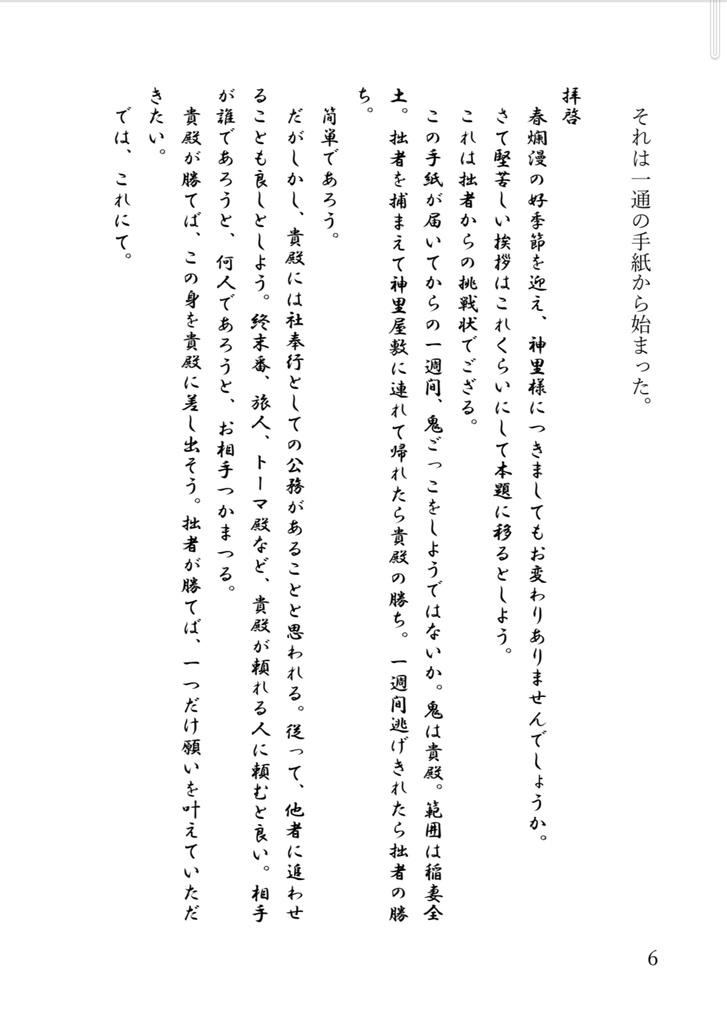 それは一通の手紙から始まった。
拝啓
春爛漫の好季節を迎え、神里様につきましてもお変わりありませんでしょうか。
さて堅苦しい挨拶はこれくらいにして本題に移るとしよう。
これは拙者からの挑戦状でござる。
この手紙が届いてからの一週間、鬼ごっこをしようではないか。鬼は貴殿。範囲は稲妻全
土。拙者を捕まえて神里屋敷に連れて帰れたら貴殿の勝ち。一週間逃げきれたら拙者の勝
ち。
簡単であろう。
だがしかし、貴殿には社奉行としての公務があることと思われる。従って、他者に追わせ
ることも良しとしよう。終末番、旅人、トーマ殿など、貴殿が頼れる人に頼むと良い。相手
が誰であろうと、何人であろうと、お相手つかまつる。
貴殿が勝てば、この身を貴殿に差し出そう。拙者が勝てば、一つだけ願いを叶えていただ
きたい。
では、これにて。
6